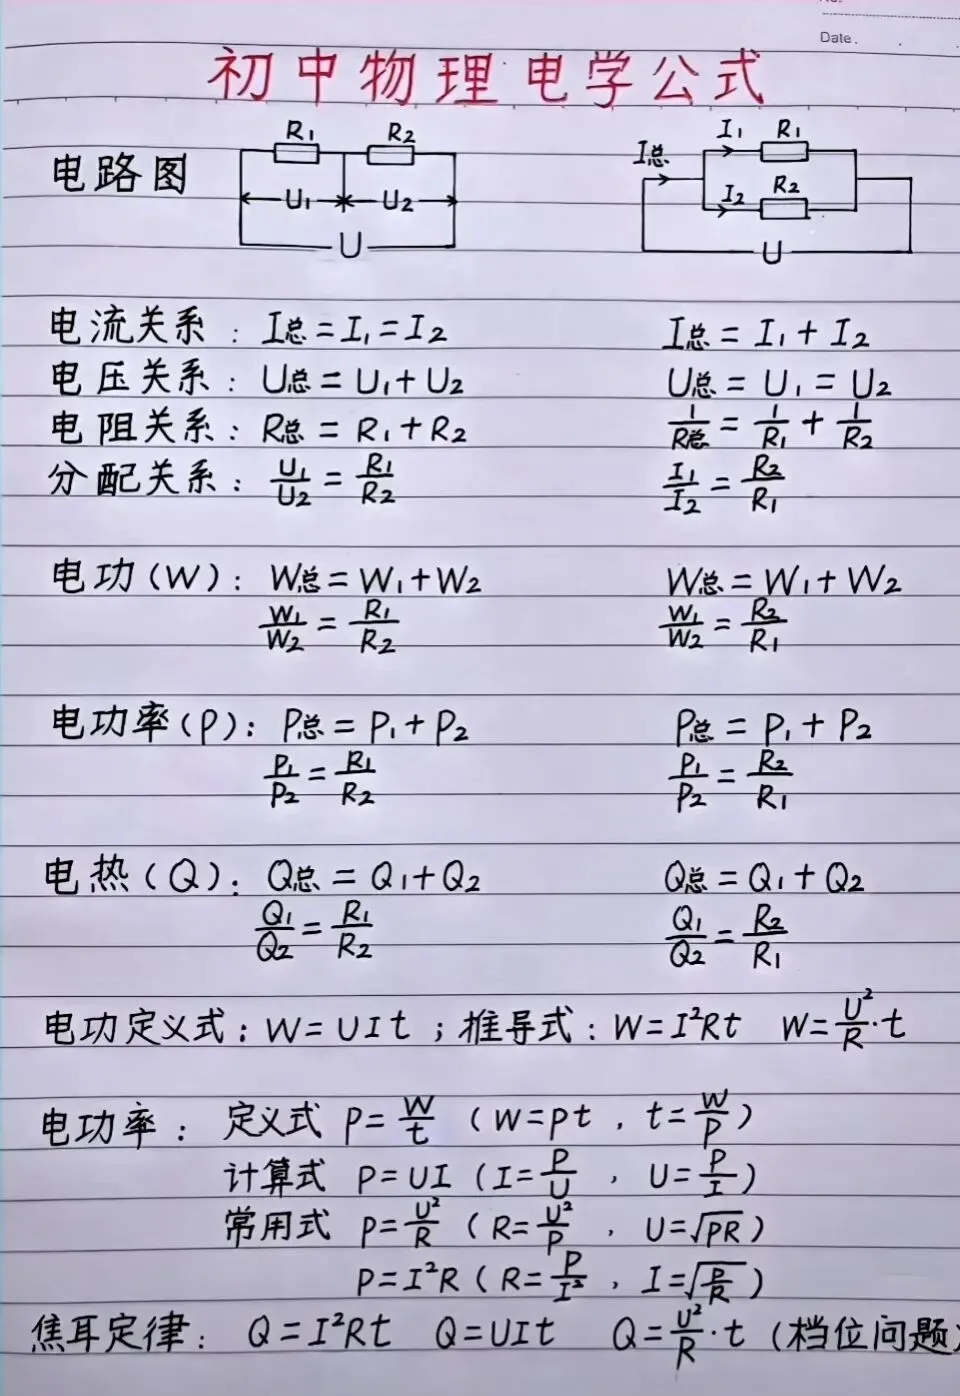 Date.
初中物理电学公式
电路图 R₁ R₂ U₁ U₂ U I总 I₁ R₁ I₂ R₂ U
电流关系：I总=I₁=I₂ I总=I₁+I₂
电压关系：U总=U₁+U₂ U总=U₁=U₂
电阻关系：R总=R₁+R₂ 1/R总=1/R₁+1/R₂
分配关系：U₁/U₂=R₁/R₂ I₁/I₂=R₂/R₁
电功(W)：W总=W₁+W₂ W总=W₁+W₂
W₁/W₂=R₁/R₂ W₁/W₂=R₂/R₁
电功率(P)：P总=P₁+P₂ P总=P₁+P₂
P₁/P₂=R₁/R₂ P₁/P₂=R₂/R₁
电热(Q)：Q总=Q₁+Q₂ Q总=Q₁+Q₂
Q₁/Q₂=R₁/R₂ Q₁/Q₂=R₂/R₁
电功定义式：W=UIt；推导式：W=I²Rt W=U²/R·t
电功率：定义式 P=W/t (W=Pt，t=W/P)
计算式 P=UI (I=P/U，U=P/I)
常用式 P=U²/R (R=U²/P，U=√PR)
P=I²R (R=P/I²，I=√(P/R))
焦耳定律：Q=I²Rt Q=UIt Q=U²/R·t (档位问题)